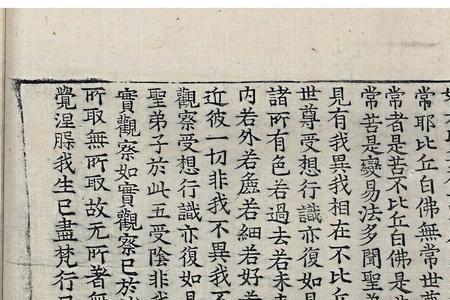 常耶比丘白佛無常世
常者是苦不比丘白佛是
常苦是變易法多聞聖
見有我異我相在不比丘
世尊受想行識亦復如是
諸所有色若過去若未来
内若外若麁若細若好若
近彼一切非我不異我不
觀察受想行識亦復如是
聖弟子於此五受陰非我
實觀察如實觀察已於
所取無所取故无所著無
覺涅槃我生已盡梵行已